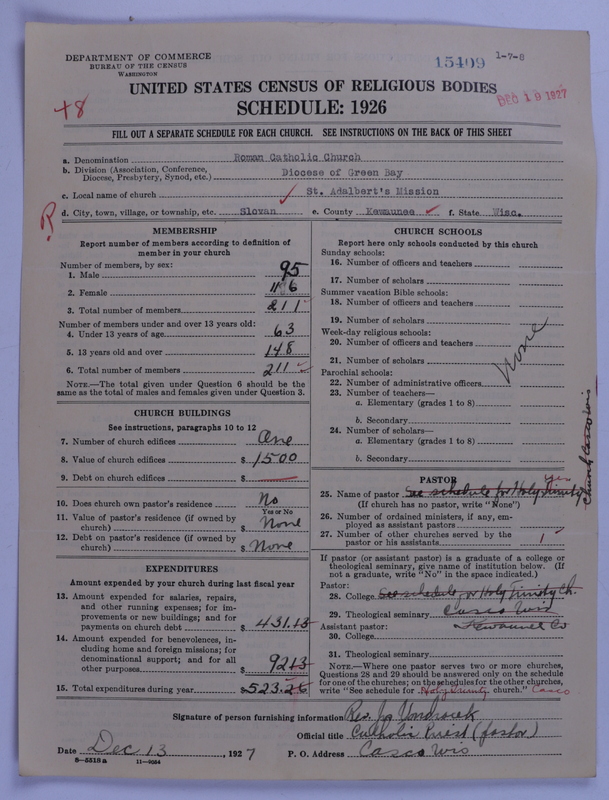 DEPARTMENT OF COMMERCE
BUREAU OF THE CENSUS
WASHINGTON
15409 1-7-8
UNITED STATES CENSUS OF RELIGIOUS BODIES
DEC 19 1927
+8
SCHEDULE: 1926
FILL OUT A SEPARATE SCHEDULE FOR EACH CHURCH. SEE INSTRUCTIONS ON THE BACK OF THIS SHEET
a. Denomination Roman Catholic Church
b. Division (Association, Conference, Diocese, Presbytery, Synod, etc.) Diocese of Green Bay
c. Local name of church St. Adalbert's Mission
R
d. City, town, village, or township, etc. Slovan e. County Kewaunee f. State Wisc.
MEMBERSHIP
Report number of members according to definition of
member in your church
Number of members, by sex:
1. Male 95
2. Female 116
3. Total number of members 211
Number of members under and over 13 years old:
4. Under 13 years of age 63
5. 13 years old and over 148
6. Total number of members 211
NOTE.—The total given under Question 6 should be the
same as the total of males and females given under Question 3.
CHURCH BUILDINGS
See instructions, paragraphs 10 to 12
7. Number of church edifices One
8. Value of church edifices $ 1500
9. Debt on church edifices $
10. Does church own pastor's residence No
Yes or No
11. Value of pastor's residence (if owned by
church) $ None
12. Debt on pastor's residence (if owned by
church) $ None
EXPENDITURES
Amount expended by your church during last fiscal year
13. Amount expended for salaries, repairs,
and other running expenses; for im-
provements or new buildings; and for
payments on church debt $ 431.13
14. Amount expended for benevolences, in-
cluding home and foreign missions; for
denominational support; and for all
other purposes $ 92.13
15. Total expenditures during year $ 523.26
CHURCH SCHOOLS
Report here only schools conducted by this church
Sunday schools:
16. Number of officers and teachers
17. Number of scholars
Summer vacation Bible schools:
18. Number of officers and teachers
19. Number of scholars
Week-day religious schools:
20. Number of officers and teachers
21. Number of scholars
None
Parochial schools:
22. Number of administrative officers
23. Number of teachers—
a. Elementary (grades 1 to 8)
b. Secondary
24. Number of scholars—
a. Elementary (grades 1 to 8)
b. Secondary
PASTOR
yes
25. Name of pastor See schedule for Holy Trinity
Church Casco Wis
(If church has no pastor, write "None")
26. Number of ordained ministers, if any, em-
ployed as assistant pastors
27. Number of other churches served by the
pastor or his assistants 1
If pastor (or assistant pastor) is a graduate of a college or
theological seminary, give name of institution below. (If
not a graduate, write "No" in the space indicated.)
Pastor:
28. College See schedule for Holy Trinity Ch.
29. Theological seminary Casco Wis
Assistant pastor: Kewaunee Co
30. College
31. Theological seminary
NOTE.—Where one pastor serves two or more churches,
Questions 28 and 29 should be answered only on the schedule
for one of the churches; on the schedules for the other churches,
write "See schedule for Holy Trinity church." Casco
Signature of person furnishing information Rev.
Official title Catholic Priest (pastor)
Date Dec 13, 1927 P. O. Address Casco Wis
8—5518a 11—9054